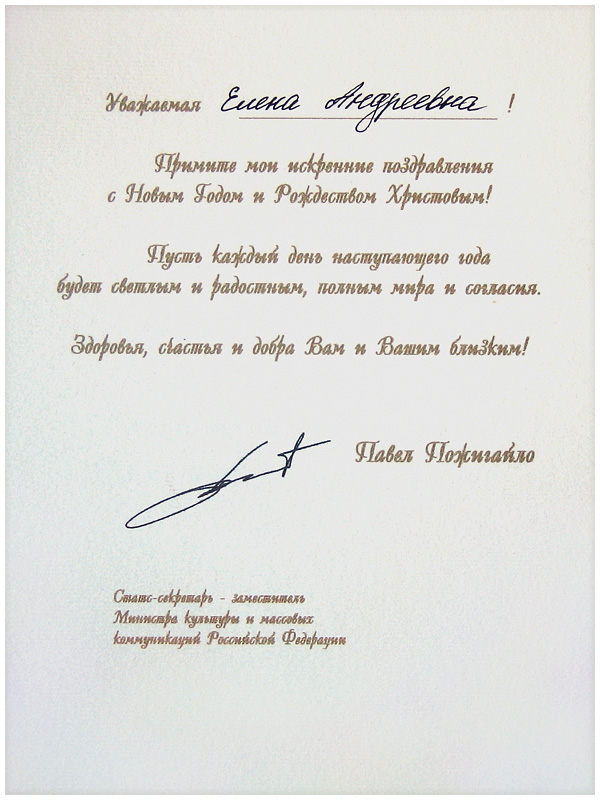 Уважаемая Елена Андреевна !
Примите мои искренние поздравления
с Новым Годом и Рождеством Христовым!
Пусть каждый день наступающего года
будет светлым и радостным, полным мира и согласия.
Здоровья, счастья и добра Вам и Вашим близким!
Павел Пожигайло
Статс-секретарь - заместитель
Министра культуры и массовых
коммуникаций Российской Федерации